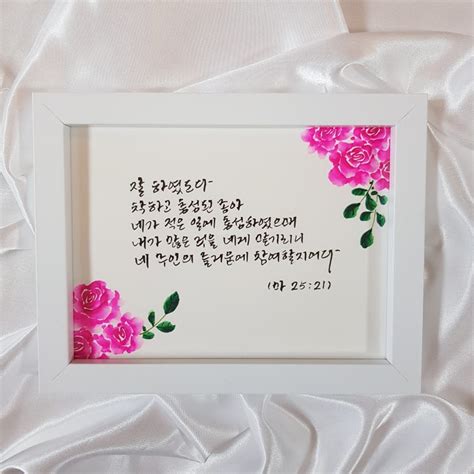 잘 하였도다
착하고 충성된 종아
네가 적은 일에 충성하였으매
내가 많은 것을 네게 맡기리니
네 주인의 즐거움에 참여할지어다
(마 25:21)